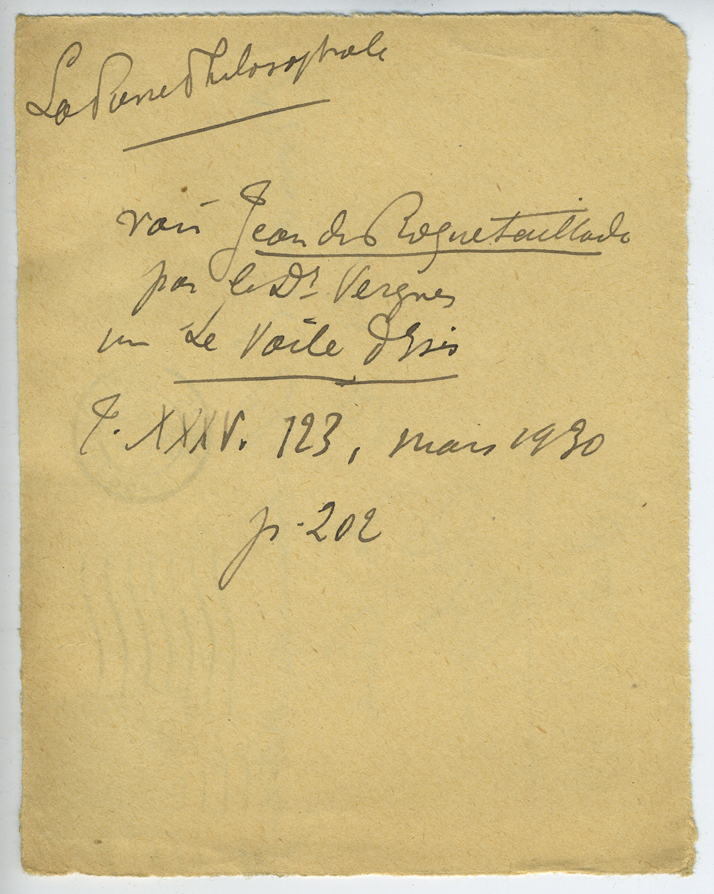 La Pierre Philosophale
voir Jean de Roquetaillade
par le Dr Vergnes
in Le Voile d'Isis
T. XXXV. 123, mars 1930
p. 202